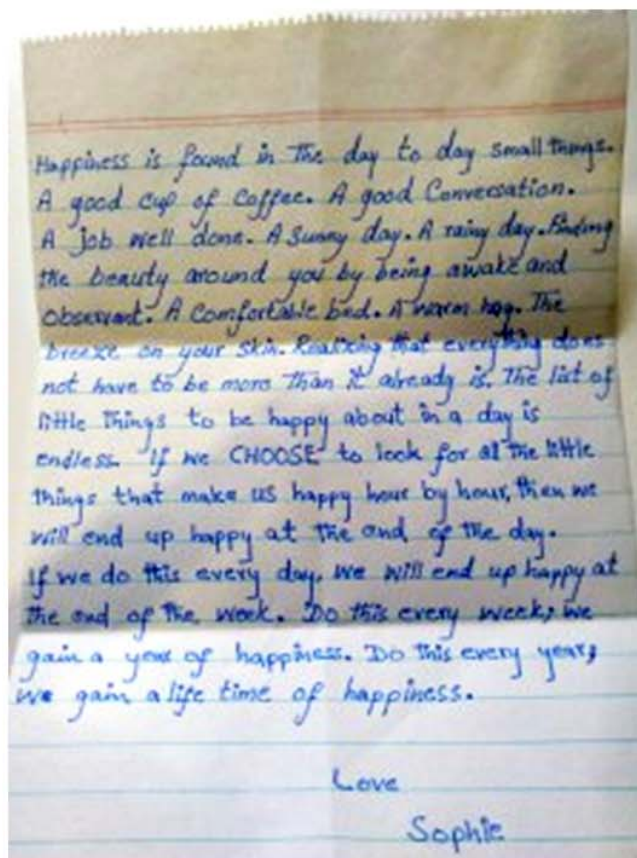 Happiness is found in the day to day small things.
A good cup of Coffee. A good Conversation.
A job well done. A Sunny day. A rainy day. Finding
the beauty around you by being awake and
Observant. A Comfortable bed. A warm hug. The
breeze on your skin. Realizing that everything does
not have to be more than it already is. The list of
little things to be happy about in a day is
endless. If we CHOOSE to look for all the little
things that make us happy hour by hour, then we
will end up happy at the end of the day.
If we do this every day, we will end up happy at
the end of the week. Do this every week, we
gain a year of happiness. Do this every year,
we gain a life time of happiness.
Love
Sophie